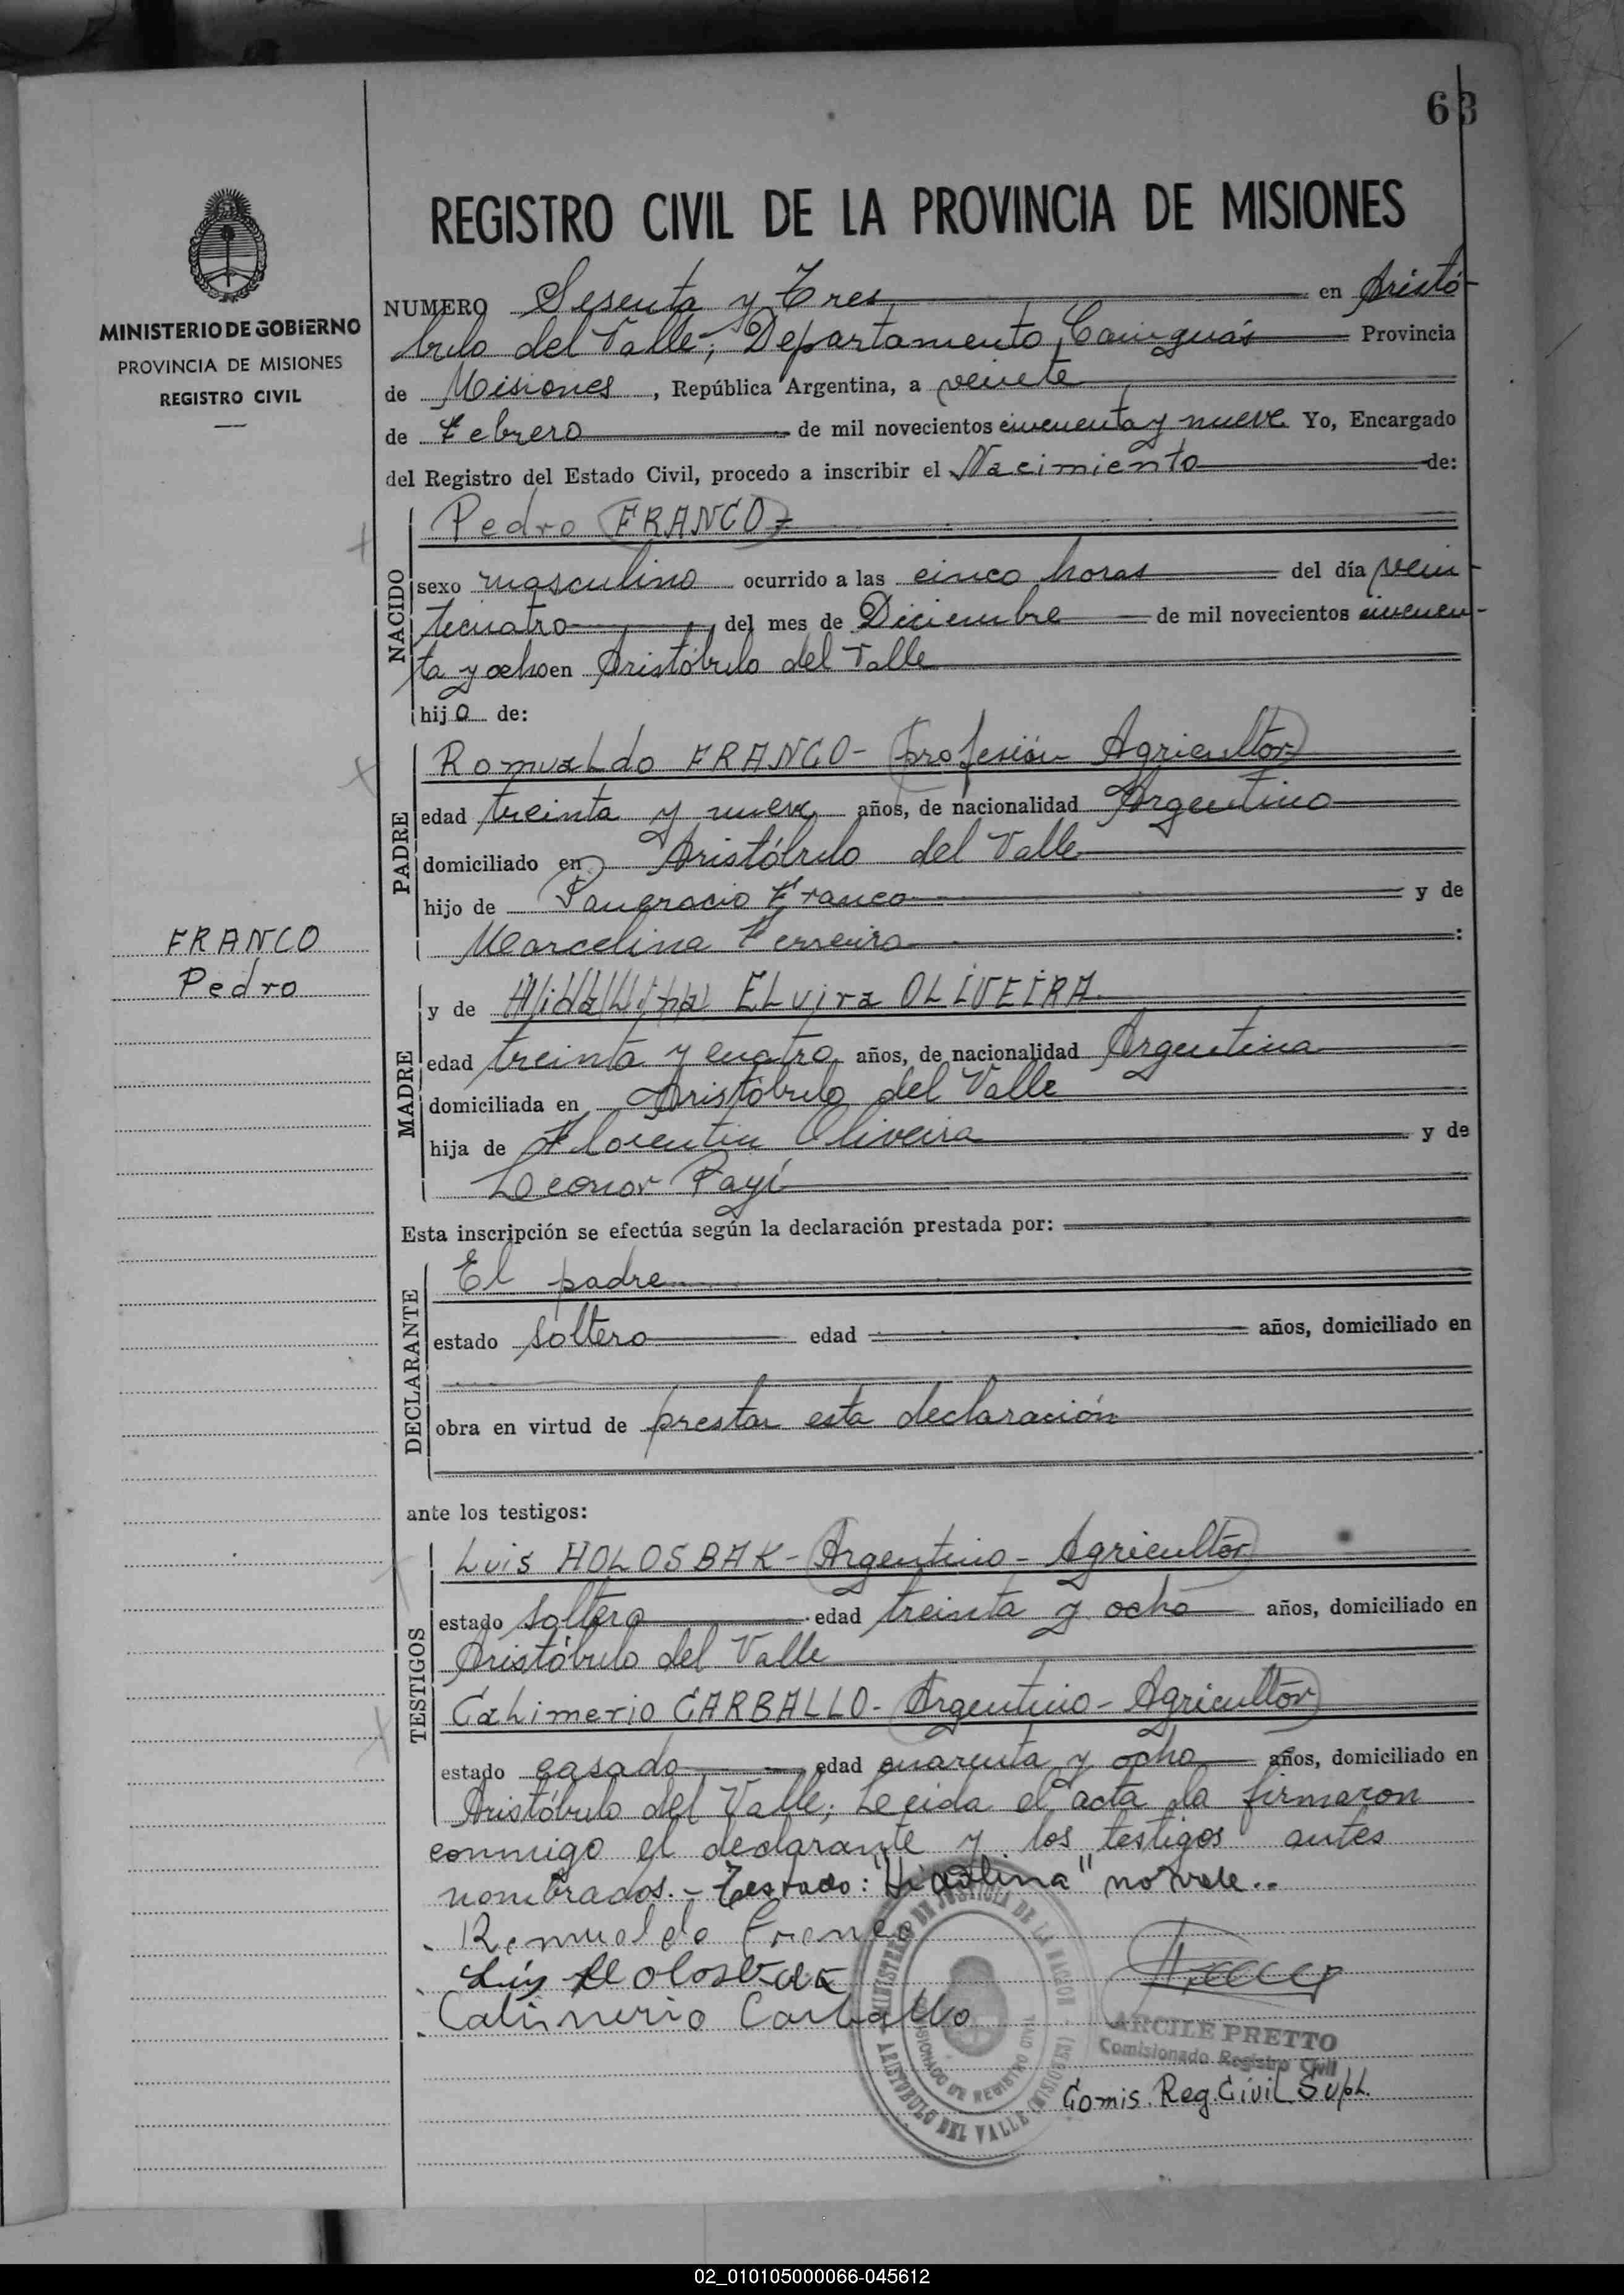 63
REGISTRO CIVIL DE LA PROVINCIA DE MISIONES
MINISTERIO DE GOBIERNO
PROVINCIA DE MISIONES
REGISTRO CIVIL
NUMERO Sesenta y Tres en Aristó-
bulo del Valle; Departamento Cainguás Provincia
de Misiones, República Argentina, a veinte
de Febrero de mil novecientos cincuenta y nueve Yo, Encargado
del Registro del Estado Civil, procedo a inscribir el Nacimiento de:
NACIDO
Pedro (FRANCO)
sexo masculino ocurrido a las cinco horas del día vein-
ticuatro del mes de Diciembre de mil novecientos cincuen-
ta y ocho en Aristóbulo del Valle
hijo de:
PADRE
Romualdo FRANCO- (profesión Agricultor)
edad treinta y nueve años, de nacionalidad Argentino
domiciliado en Aristóbulo del Valle
hijo de Pancracio Franco y de
Marcelina Ferreira :
FRANCO
Pedro
MADRE
y de Hidalina Elvira OLIVEIRA
edad treinta y cuatro años, de nacionalidad Argentina
domiciliada en Aristóbulo del Valle
hija de Florentin Oliveira y de
Leonor Payí
Esta inscripción se efectúa según la declaración prestada por:
DECLARANTE
El padre
estado soltero edad años, domiciliado en
obra en virtud de prestar esta declaración
ante los testigos:
TESTIGOS
Luis HOLOSBAK- (Argentino- Agricultor)
estado soltero edad treinta y ocho años, domiciliado en
Aristóbulo del Valle
Calimerio CARBALLO- (Argentino- Agricultor)
estado casado edad cuarenta y ocho años, domiciliado en
Aristóbulo del Valle; Leeida el acta la firmaron
conmigo el declarante y los testigos antes
nombrados.- Testado: "Hidalina" no vale..
Romueldo Franco
Luis Holosbak
Calimerio Carballo
MINISTERIO DE JUSTICIA DE LA NACION
COMISIONADO DE REGISTRO CIVIL
ARISTOBULO DEL VALLE (MISIONES)
ARCILE PRETTO
Comisionado Registro Civil
Comis. Reg. Civil Supl.
02_010105000066-045612